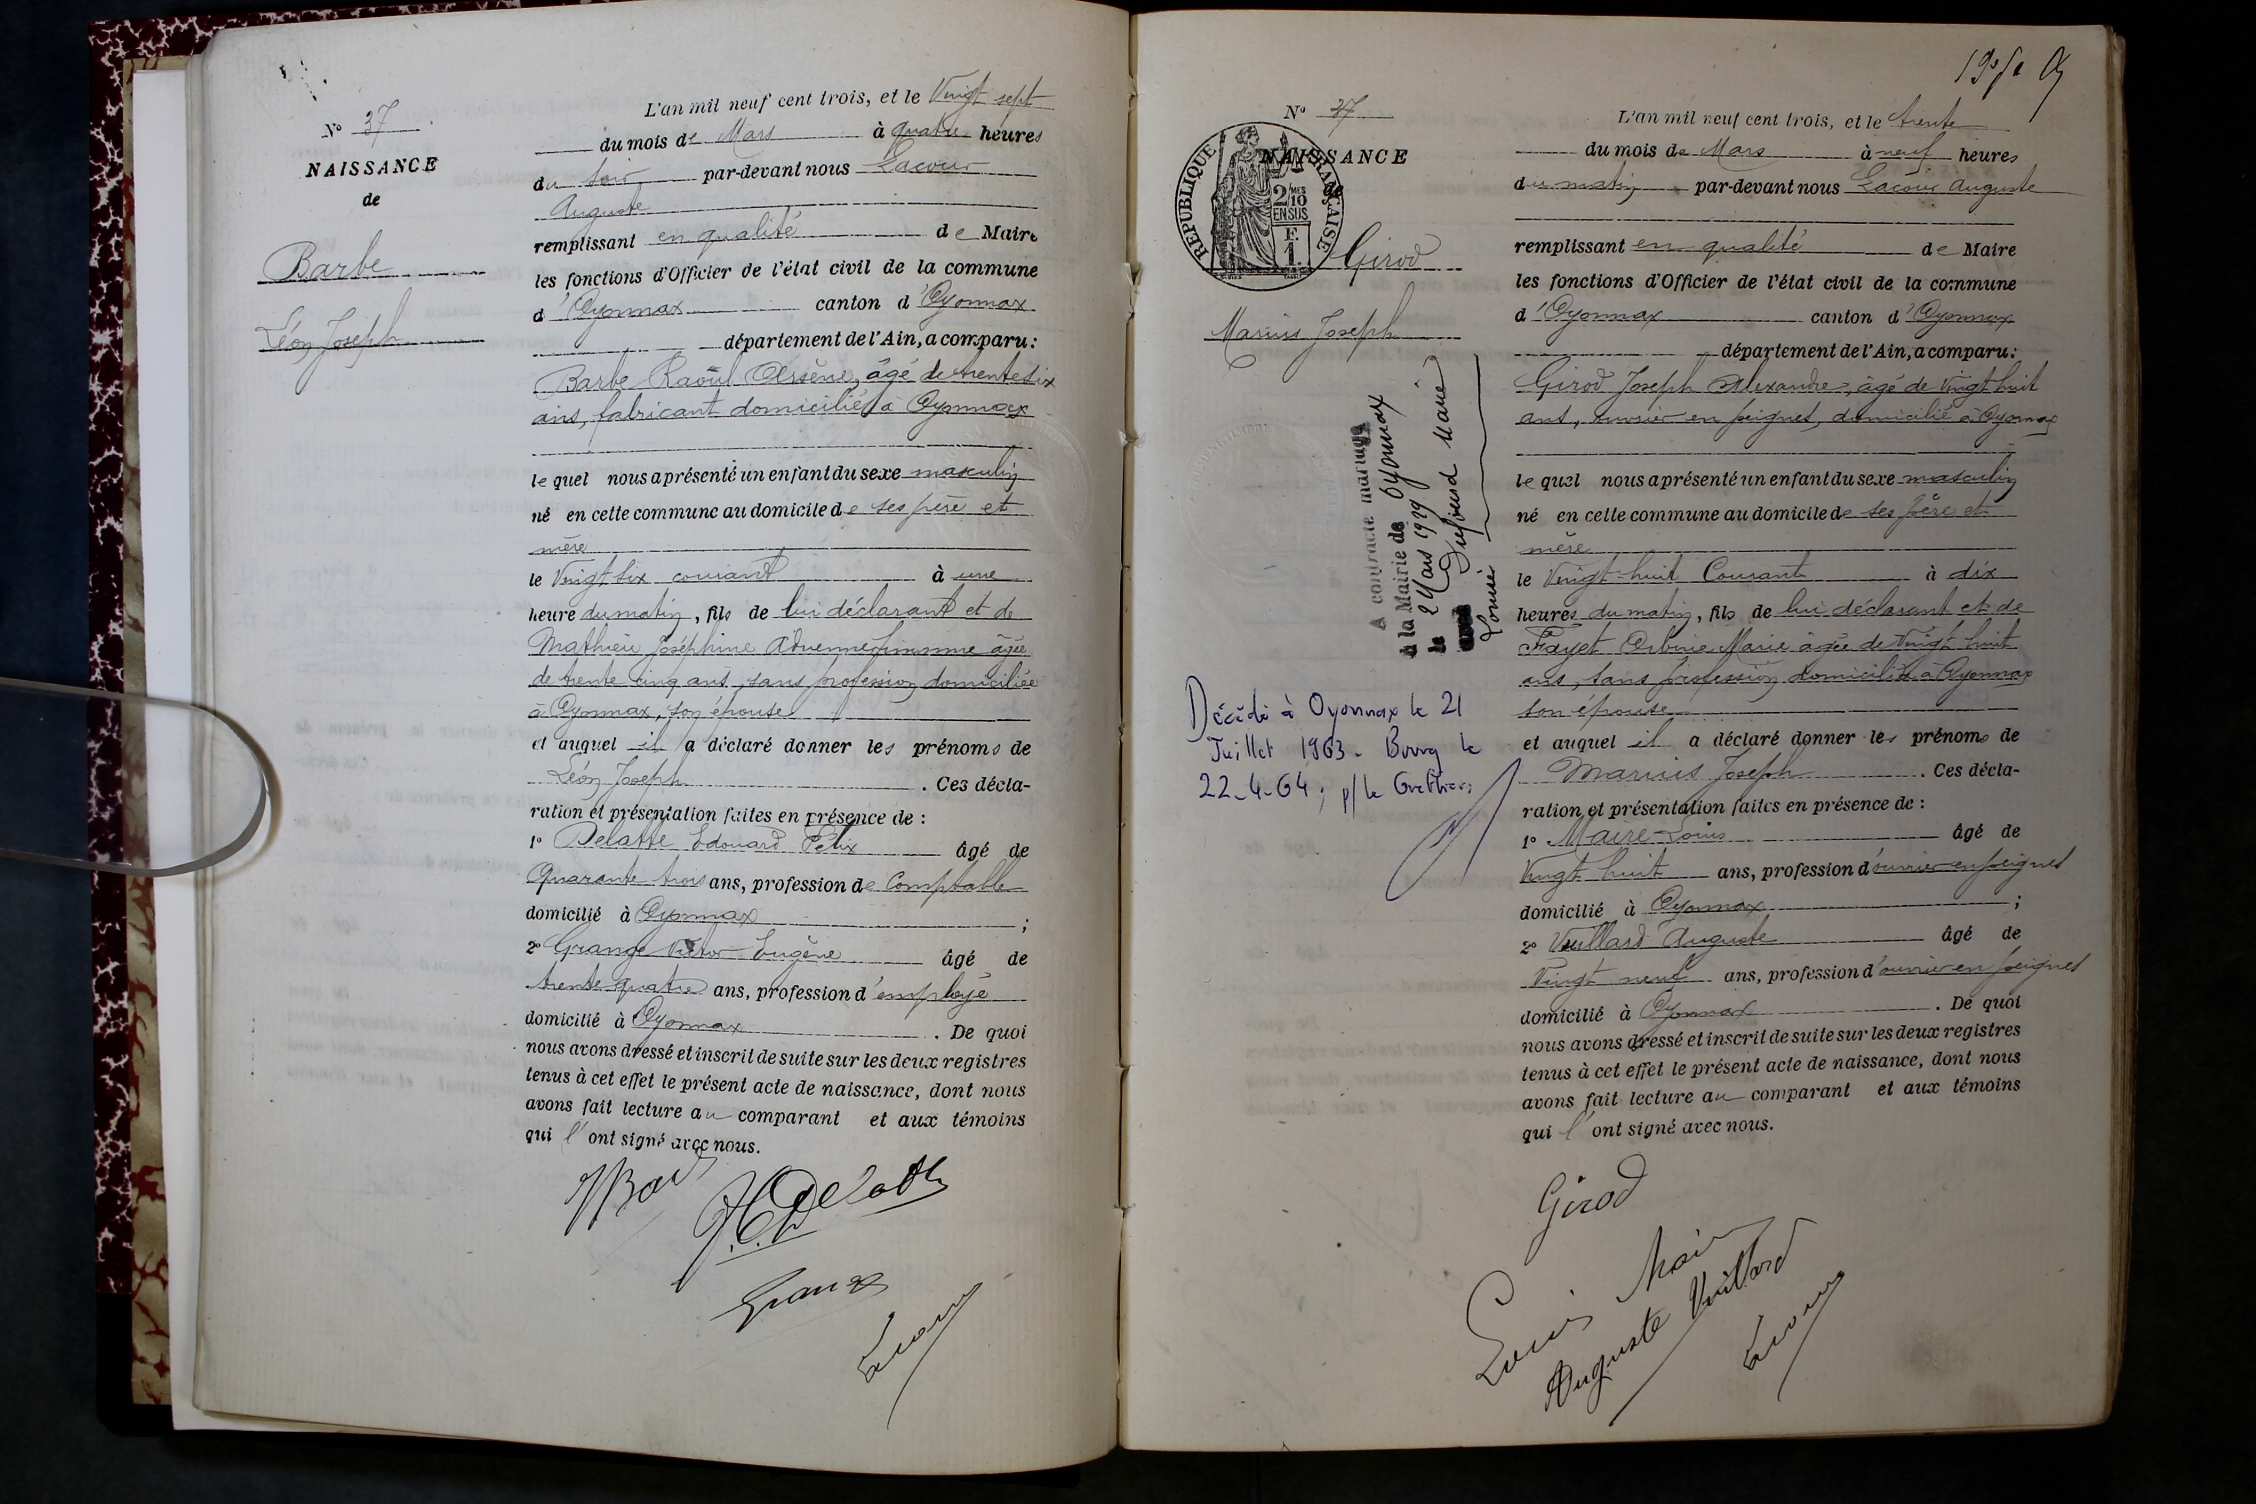 N° 37
NAISSANCE
de
Barbe
Léon Joseph
L'an mil neuf cent trois, et le Vingt sept
du mois de Mars à quatre heures
du soir par-devant nous Lacour
Auguste
remplissant en qualité de Maire
les fonctions d'Officier de l'état civil de la commune
d'Oyonnax canton d'Oyonnax
département de l'Ain, a comparu :
Barbe Raoul Arsène, âgé de trente six
ans, fabricant domicilié à Oyonnax
lequel nous a présenté un enfant du sexe masculin
né en cette commune au domicile de ses père et
mère
le Vingt six courant à une
heure du matin, fils de lui déclarant et de
Mathieu Joséphine âgée
de trente cinq ans, sans profession domiciliée
à Oyonnax, son épouse
et auquel il a déclaré donner les prénoms de
Léon Joseph . Ces décla-
ration et présentation faites en présence de :
1° Delatte Edouard Félix âgé de
Quarante trois ans, profession de Comptable
domicilié à Oyonnax ;
2° Grange Victor Eugène âgé de
trente quatre ans, profession d'employé
domicilié à Oyonnax . De quoi
nous avons dressé et inscrit de suite sur les deux registres
tenus à cet effet le présent acte de naissance, dont nous
avons fait lecture au comparant et aux témoins
qui l'ont signé avec nous.
Delatte
Grange
Lacour
N° 37
NAISSANCE
de
RÉPUBLIQUE FRANÇAISE
2 MES
2/10
EN SUS
F.
1.
Girod
Marius Joseph
A contracté mariage
à la Mairie de Oyonnax
le 2 Mars 1929
avec Dufour Marie
Louise
Décédé à Oyonnax le 21
Juillet 1963 - Bourg le
22-4-64 ; p/le Greffier,
L'an mil neuf cent trois, et le trente
du mois de Mars à neuf heures
du matin par-devant nous Lacour Auguste
remplissant en qualité de Maire
les fonctions d'Officier de l'état civil de la commune
d'Oyonnax canton d'Oyonnax
département de l'Ain, a comparu :
Girod Joseph Alexandre, âgé de Vingt huit
ans, ouvrier en peignes, domicilié à Oyonnax
lequel nous a présenté un enfant du sexe masculin
né en cette commune au domicile de ses père et
mère
le Vingt-huit Courant à dix
heures du matin, fils de lui déclarant et de
Fayet Marie âgée de Vingt huit
ans, sans profession domiciliée à Oyonnax
son épouse
et auquel il a déclaré donner les prénoms de
Marius Joseph . Ces décla-
ration et présentation faites en présence de :
1° Maire Louis âgé de
Vingt huit ans, profession d'ouvrier en peignes
domicilié à Oyonnax ;
2° Vuillard Auguste âgé de
Vingt neuf ans, profession d'ouvrier en peignes
domicilié à Oyonnax . De quoi
nous avons dressé et inscrit de suite sur les deux registres
tenus à cet effet le présent acte de naissance, dont nous
avons fait lecture au comparant et aux témoins
qui l'ont signé avec nous.
Girod
Louis Maire
Auguste Vuillard
Lacour